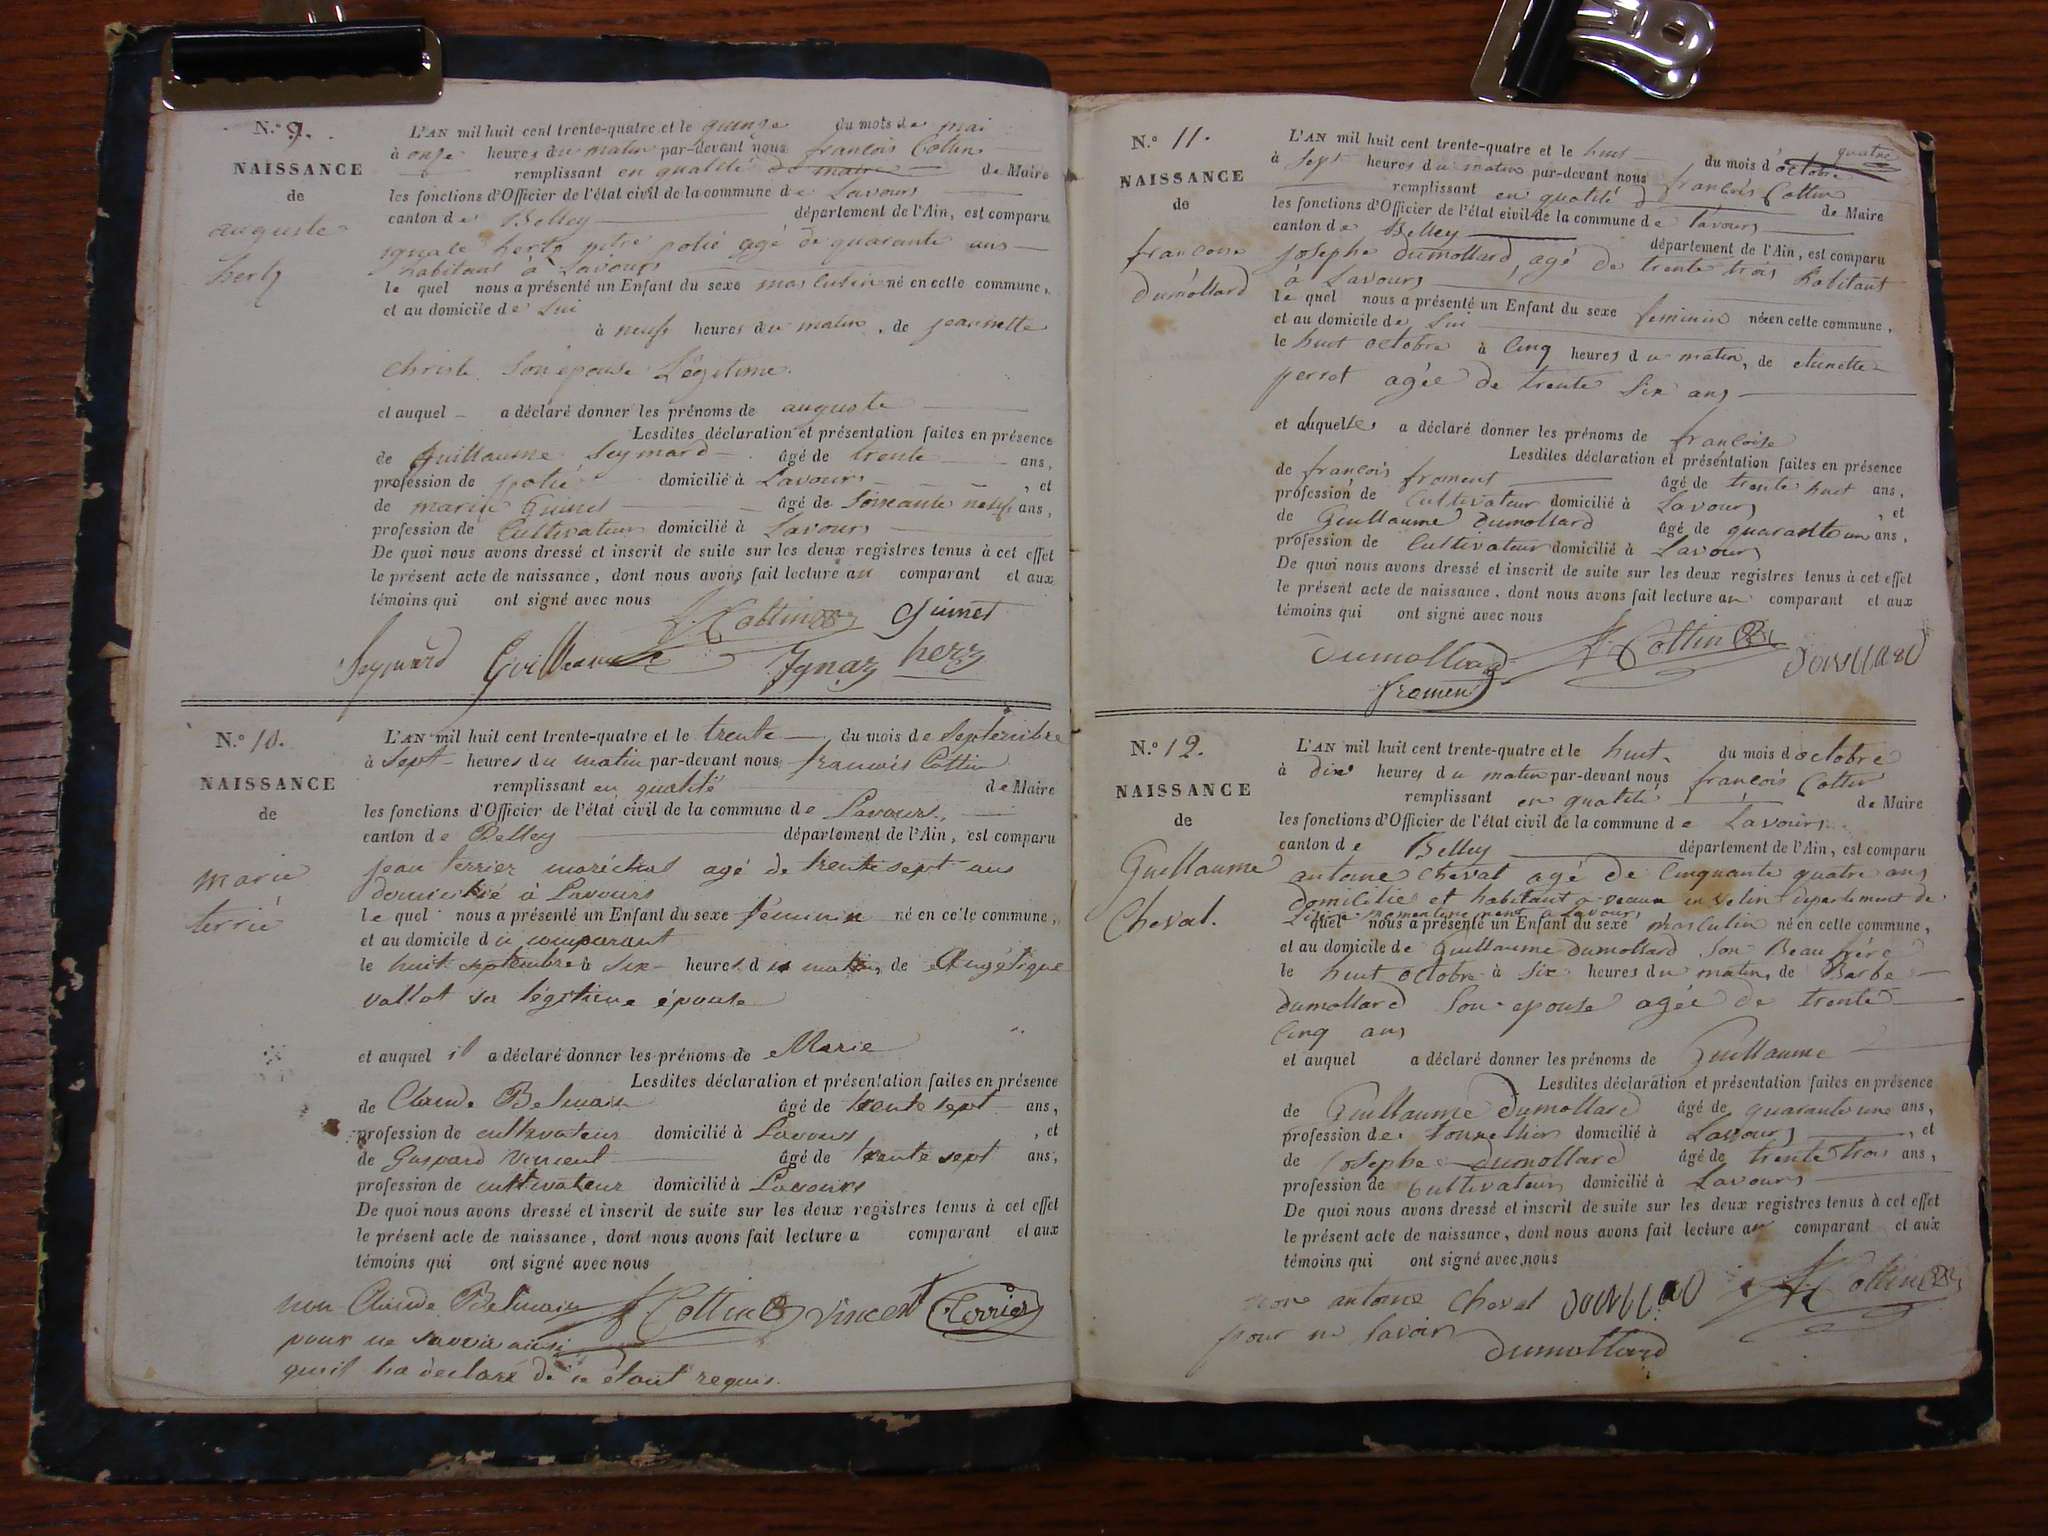 N.° 9.
NAISSANCE
de
auguste
hertz
L'AN mil huit cent trente-quatre et le quinze du mois de mai
à onze heures du matin par-devant nous françois Cottin
remplissant en qualité de maire de Maire
les fonctions d'Officier de l'état civil de la commune de Lavours
canton de Belley département de l'Ain, est comparu
ignace hertz potié agé de quarante ans
habitant à Lavours
le quel nous a présenté un Enfant du sexe masculin né en cette commune,
et au domicile de Lui
à neuf heures du matin, de jeannette
christe Son épouse Légitime.
et auquel a déclaré donner les prénoms de auguste
Lesdites déclaration et présentation faites en présence
de Guillaume Seymard âgé de trente ans,
profession de potié domicilié à Lavours, et
de marin Guinet âgé de Soixante neuf ans,
profession de Cultivateur domicilié à Lavours
De quoi nous avons dressé et inscrit de suite sur les deux registres tenus à cet effet
le présent acte de naissance, dont nous avons fait lecture au comparant et aux
témoins qui ont signé avec nous
f. Cottin Guinet
Seymard Guilleaume Ignaz herz
N.° 10.
NAISSANCE
de
marie
terrié
L'AN mil huit cent trente-quatre et le trente du mois de Septembre
à sept heures du matin par-devant nous francois Cottin
remplissant en qualité de Maire
les fonctions d'Officier de l'état civil de la commune de Lavours,
canton de Belley département de l'Ain, est comparu
jean terrier maréchal agé de trente sept ans
domicilié à Lavours
le quel nous a présenté un Enfant du sexe féminin né en cette commune,
et au domicile du comparant
le huit septembre à six heures du matin, de Angétique
vallot sa légitime épouse
et auquel il a déclaré donner les prénoms de Marie
Lesdites déclaration et présentation faites en présence
de Claude Belmain âgé de trente sept ans,
profession de cultivateur domicilié à Lavours, et
de Gaspard Vincent âgé de trente sept ans,
profession de cultivateur domicilié à Lavours
De quoi nous avons dressé et inscrit de suite sur les deux registres tenus à cet effet
le présent acte de naissance, dont nous avons fait lecture a comparant et aux
témoins qui ont signé avec nous
non Claude Belmain f Cottin Vincent Terrier
pour ne savoir ainsi
qu'il ha déclaré de ce étant requis.
N.° 11.
NAISSANCE
de
francoise
Dumollard
L'AN mil huit cent trente-quatre et le huit du mois d'octobre quatre
à Sept heures du matin par-devant nous françois Cottin
remplissant en qualité d de Maire
les fonctions d'Officier de l'état civil de la commune de Lavours
canton de Belley département de l'Ain, est comparu
Josephe Dumollard, agé de trente trois habitant
à Lavours
le quel nous a présenté un Enfant du sexe feminin née en cette commune,
et au domicile de Lui
le huit octobre à Cinq heures du matin, de etienette
perrot agée de trente Six ans
et auquelle a déclaré donner les prénoms de françoise
Lesdites déclaration et présentation faites en présence
de françois froment âgé de trente huit ans,
profession de Cultivateur domicilié à Lavours, et
de Guillaume Dumollard âgé de quarante un ans,
profession de Cultivateur domicilié à Lavours
De quoi nous avons dressé et inscrit de suite sur les deux registres tenus à cet effet
le présent acte de naissance, dont nous avons fait lecture au comparant et aux
témoins qui ont signé avec nous
Dumollard f Cottin
froment
N.° 12.
NAISSANCE
de
Guillaume
Cheval.
L'AN mil huit cent trente-quatre et le huit du mois d octobre
à dix heures du matin par-devant nous françois Cottin
remplissant en qualité de Maire
les fonctions d'Officier de l'état civil de la commune de Lavours
canton de Belley département de l'Ain, est comparu
antoine cheval agé de Cinquante quatre ans
domicilié et habitant a veaux en velin departement de
L'isere momentanement a Lavours
quel nous a présenté un Enfant du sexe masculin né en cette commune,
et au domicile de Guillaume Dumollard Son Beau frére
le huit octobre à six heures du matin, de Barbe
dumollard Son epouse agée de trente
Cinq ans
et auquel a déclaré donner les prénoms de Guillaume
Lesdites déclaration et présentation faites en présence
de Guillaume Dumollard âgé de quarante une ans,
profession de tonnellier domicilié à Lavours, et
de Josephe Dumollard âgé de trente trois ans,
profession de Cultivateur domicilié à Lavours
De quoi nous avons dressé et inscrit de suite sur les deux registres tenus à cet effet
le présent acte de naissance, dont nous avons fait lecture au comparant et aux
témoins qui ont signé avec nous
non antoine Cheval f Cottin
pour ne Savoir
dumollard